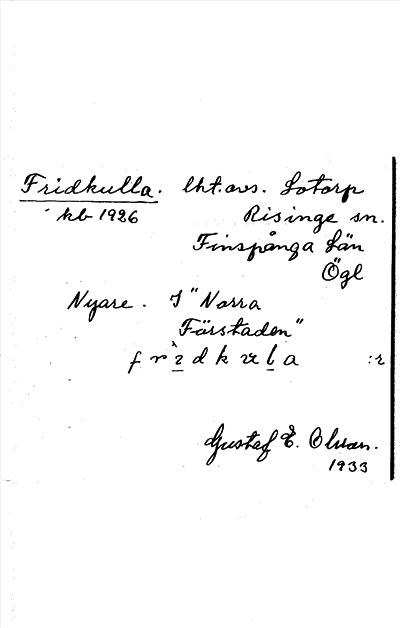 Fridkulla. lht.avs. Lotorp
kb 1926 Risinge sn.
Finspånga Län
Ögl
Nyare. I "Norra
Förstaden"
:r
Gustaf E. Olsson.
1933